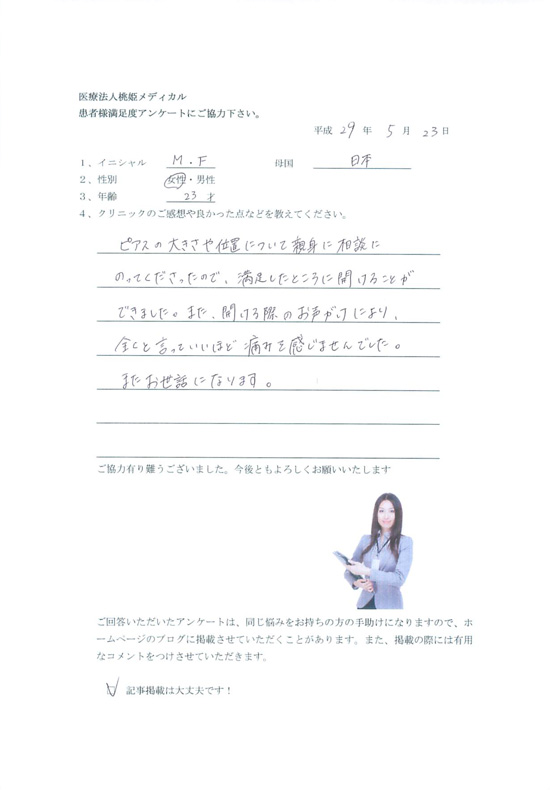 医療法人桃姫メディカル
患者様満足度アンケートにご協力下さい。
平成 29 年 5 月 23 日
1、イニシャル M.F 母国 日本
2、性別 女性・男性
3、年齢 23 才
4、クリニックのご感想や良かった点などを教えてください。
ピアスの大きさや位置について親身に相談に
のってくださったので、満足したところに開けることが
できました。また、開ける際のお声がけにより、
全くと言っていいほど痛みを感じませんでした。
またお世話になります。
ご協力有り難うございました。今後ともよろしくお願いいたします
ご回答いただいたアンケートは、同じ悩みをお持ちの方の手助けになりますので、ホ
ームページのブログに掲載させていただくことがあります。また、掲載の際には有用
なコメントをつけさせていただきます。
記事掲載は大丈夫です！